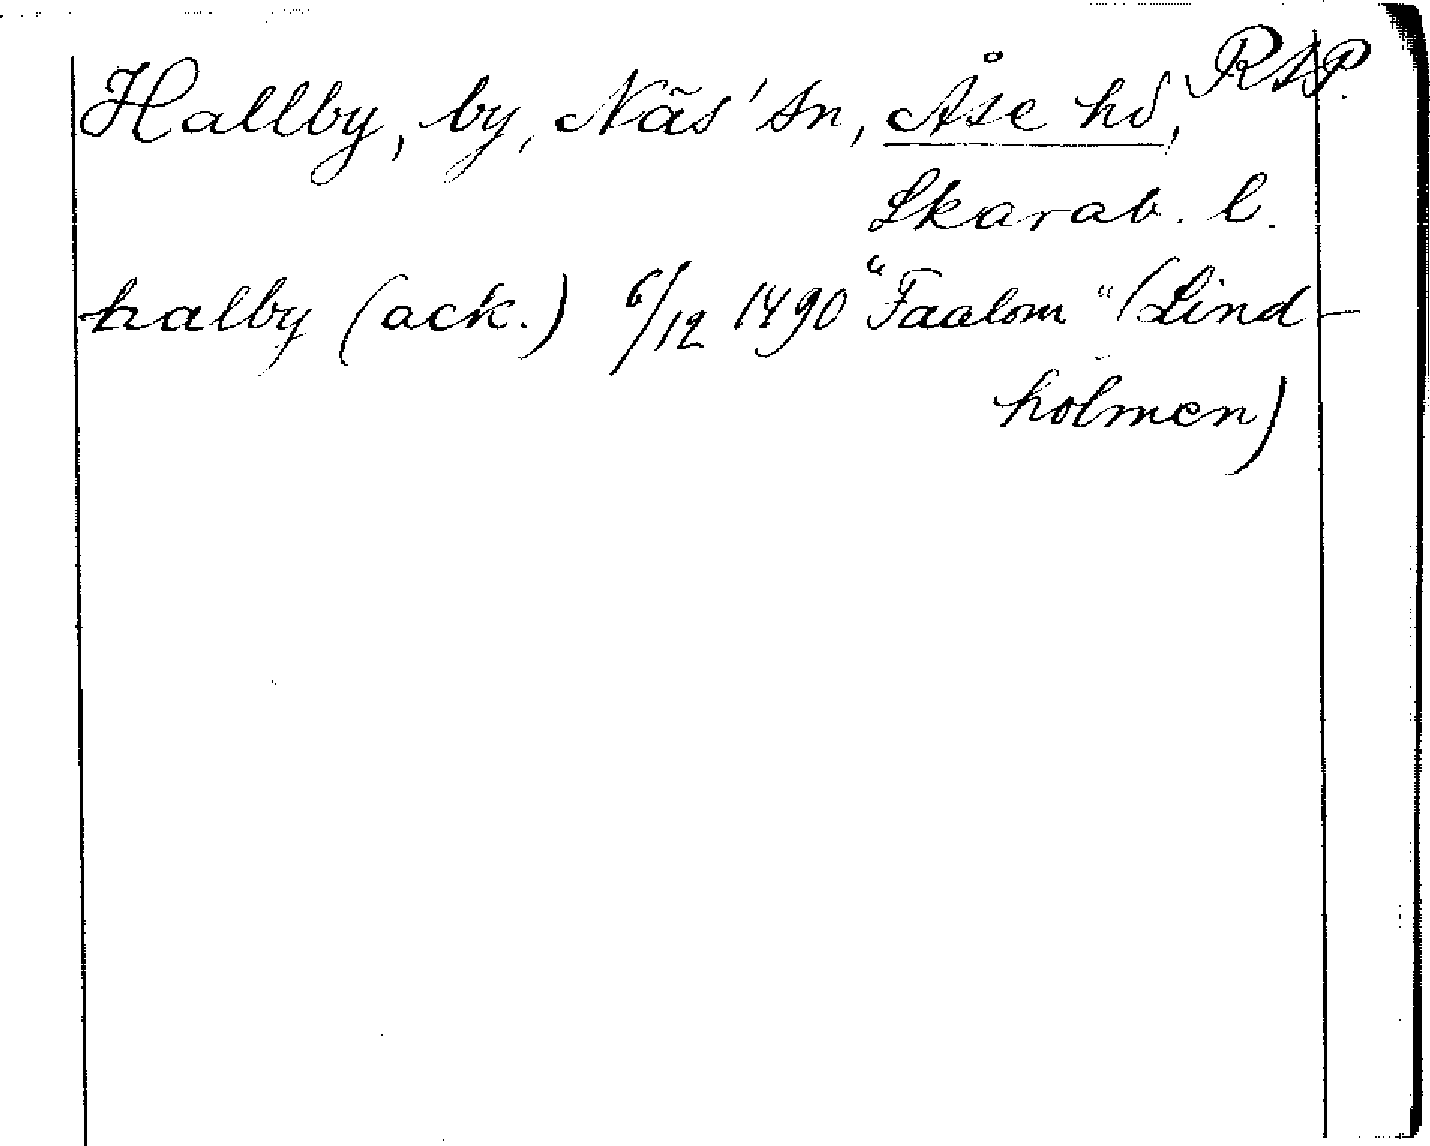 Hallby, by, Näs' sn, Åse hd, RAP.
Skarab. l.
halby (ack.) 6/12 1490 "Faalom" (Lind-
holmen)